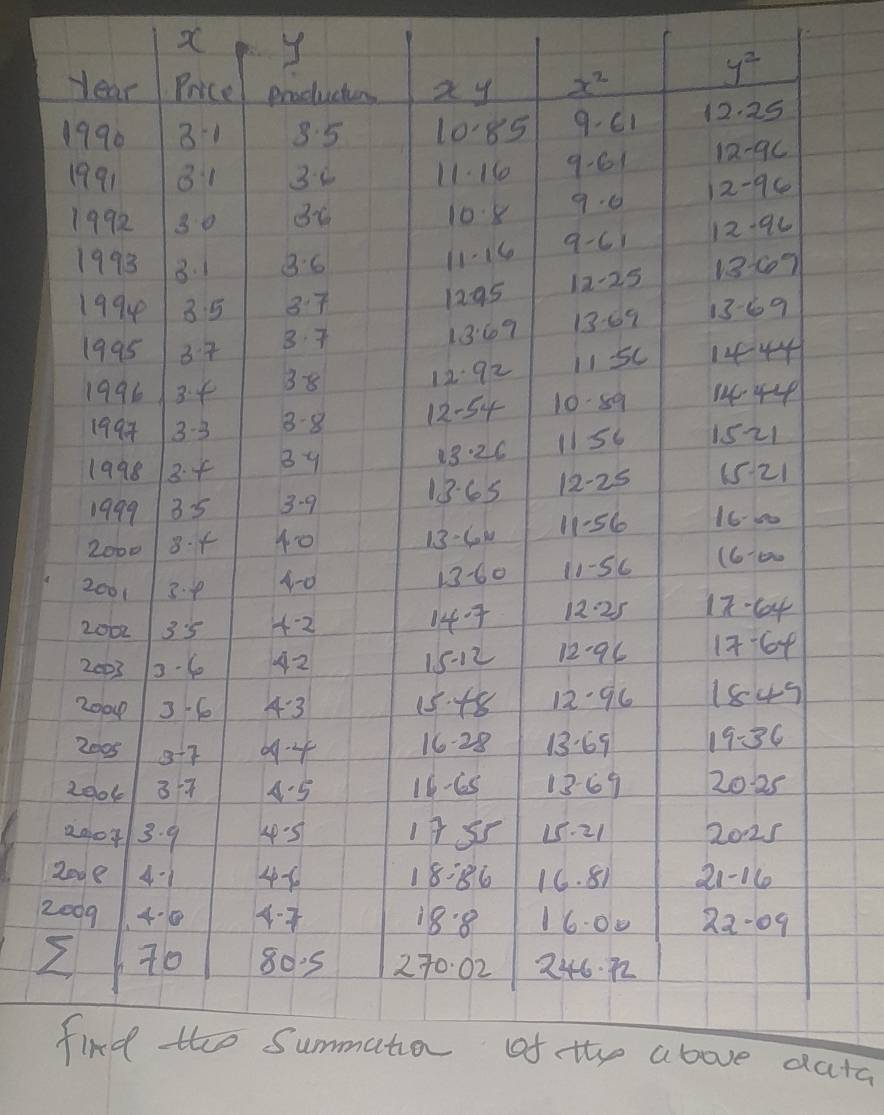 x y
Year Price production xy x² y²
1990 3.1 3.5 10.85 9.61 12.25
1991 3.1 3.6 11.16 9.61 12.96
1992 3.0 3.6 10.8 9.0 12.96
1993 3.1 3.6 11.16 9.61 12.96
1994 3.5 3.7 12.95 12.25 13.69
1995 3.7 3.7 13.69 13.69 13.69
1996 3.4 3.8 12.92 11.56 14.44
1997 3.3 3.8 12.54 10.89 14.44
1998 3.4 3.9 13.26 11.56 15.21
1999 3.5 3.9 13.65 12.25 15.21
2000 3.4 4.0 13.60 11.56 16.00
2001 3.4 4.0 13.60 11.56 16.00
2002 3.5 4.2 14.7 12.25 17.64
2003 3.6 4.2 15.12 12.96 17.64
2004 3.6 4.3 15.48 12.96 18.49
2005 3.7 4.4 16.28 13.69 19.36
2006 3.7 4.5 16.65 13.69 20.25
2007 3.9 4.5 17.55 15.21 20.25
2008 4.1 4.6 18.86 16.81 21.16
2009 4.0 4.7 18.8 16.00 22.09
Σ 70 80.5 270.02 246.72
find the summation of the above data